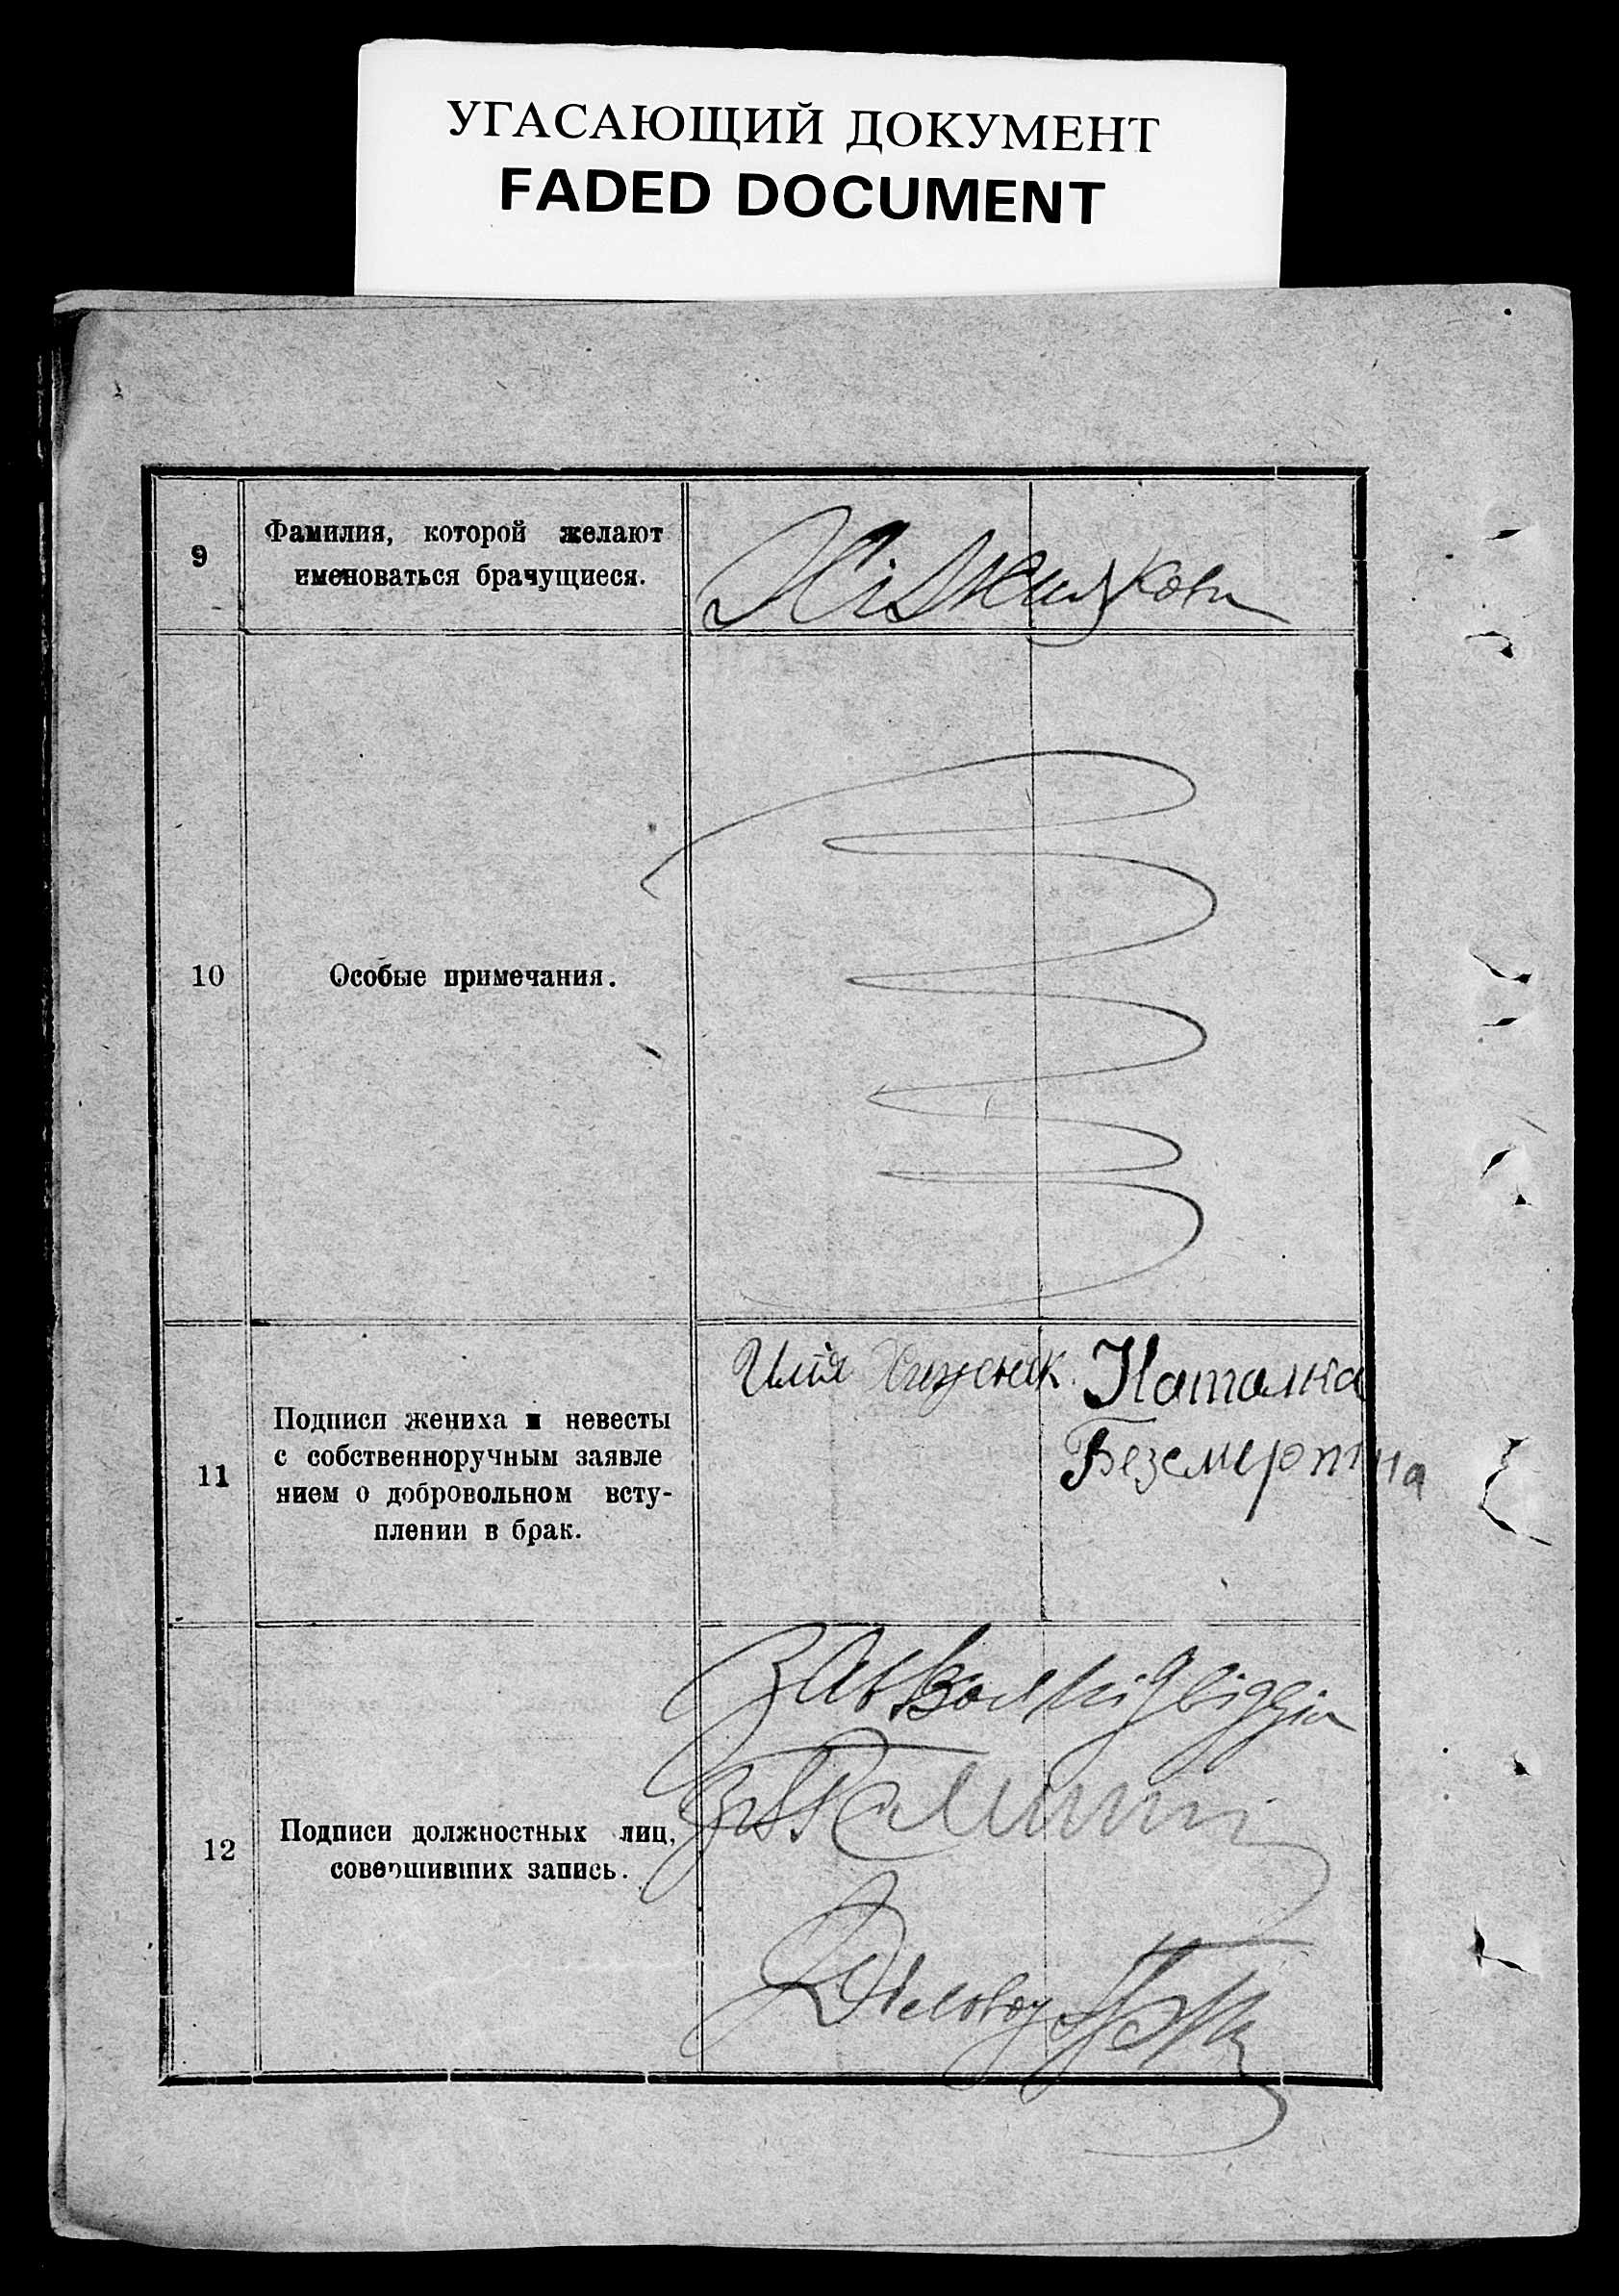 УГАСАЮЩИЙ ДОКУМЕНТ
FADED DOCUMENT
9
Фамилия, которой желают
именоваться брачущиеся.
10
Особые примечания.
11
Подписи жениха и невесты
с собственноручным заявле
нием о добровольном всту-
плении в брак.
Илія
Наталка
Безсмертна
12
Подписи должностных лиц,
совершивших запись.
Діловод